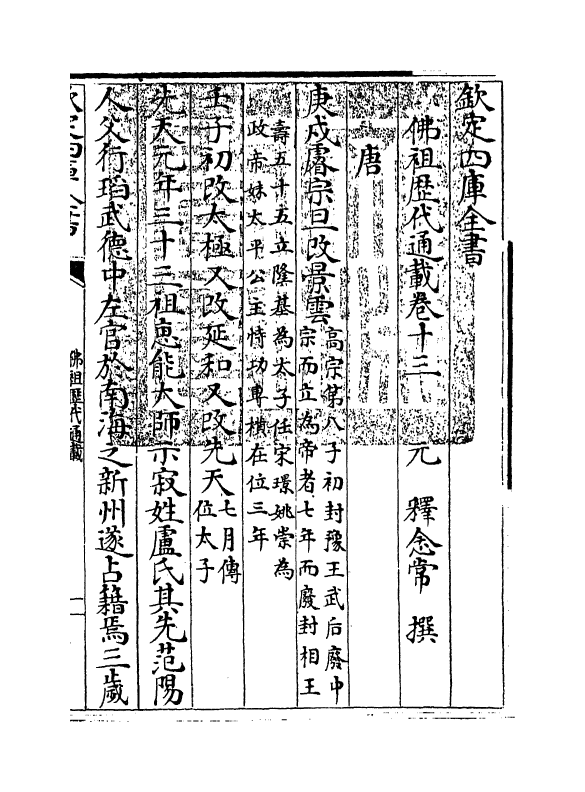 欽定四庫全書
佛祖歴代通載卷十三　元　釋念常　撰
唐
庚戍睿宗旦改景雲高宗第八子初封豫王武后廢中
宗而立為帝者七年而廢封相王
壽五十五立隆基為太子任宋璟姚崇為
政帝妹太平公主恃功專權在位三年
壬子初改太極又改延和又改先天七月傳
位太子
先天元年三十三祖恵能大師示寂姓盧氏其先范陽
人父行瑫武德中左官於南海之新州遂占籍焉三歲
欽定四庫全書
佛祖歴代通載
一